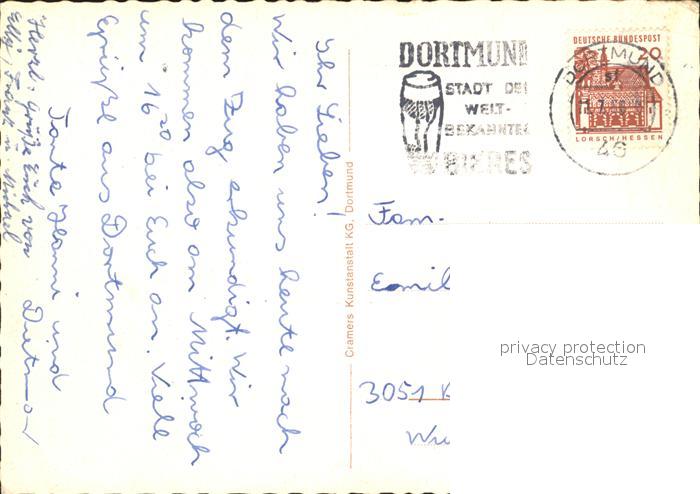 Ihr Lieben!
Wir haben uns heute nach
dem Zug erkundigt. Wir
kommen also am Mittwoch
um 16²⁰ bei Euch an. Viele
Grüße aus Dortmund
Tante Hanni und
Dietmar
Herzl. Grüße Euch von
Elli, Frank u. Michael
Cramers Kunstanstalt KG, Dortmund
DORTMUND
STADT DER
WELT-
BEKANNTEN
BIERES
DEUTSCHE BUNDESPOST
20
LORSCH/HESSEN
DORTMUND
46
Fam.
Emil
3051 K
Wu
privacy protection
Datenschutz